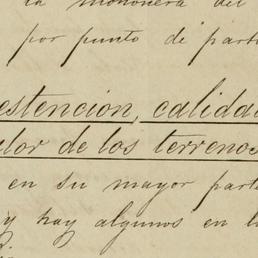 la mononera del
por punto de parti
estencion, calidad
alor de los terrenos
en su mayor parte
y hay algunos en la